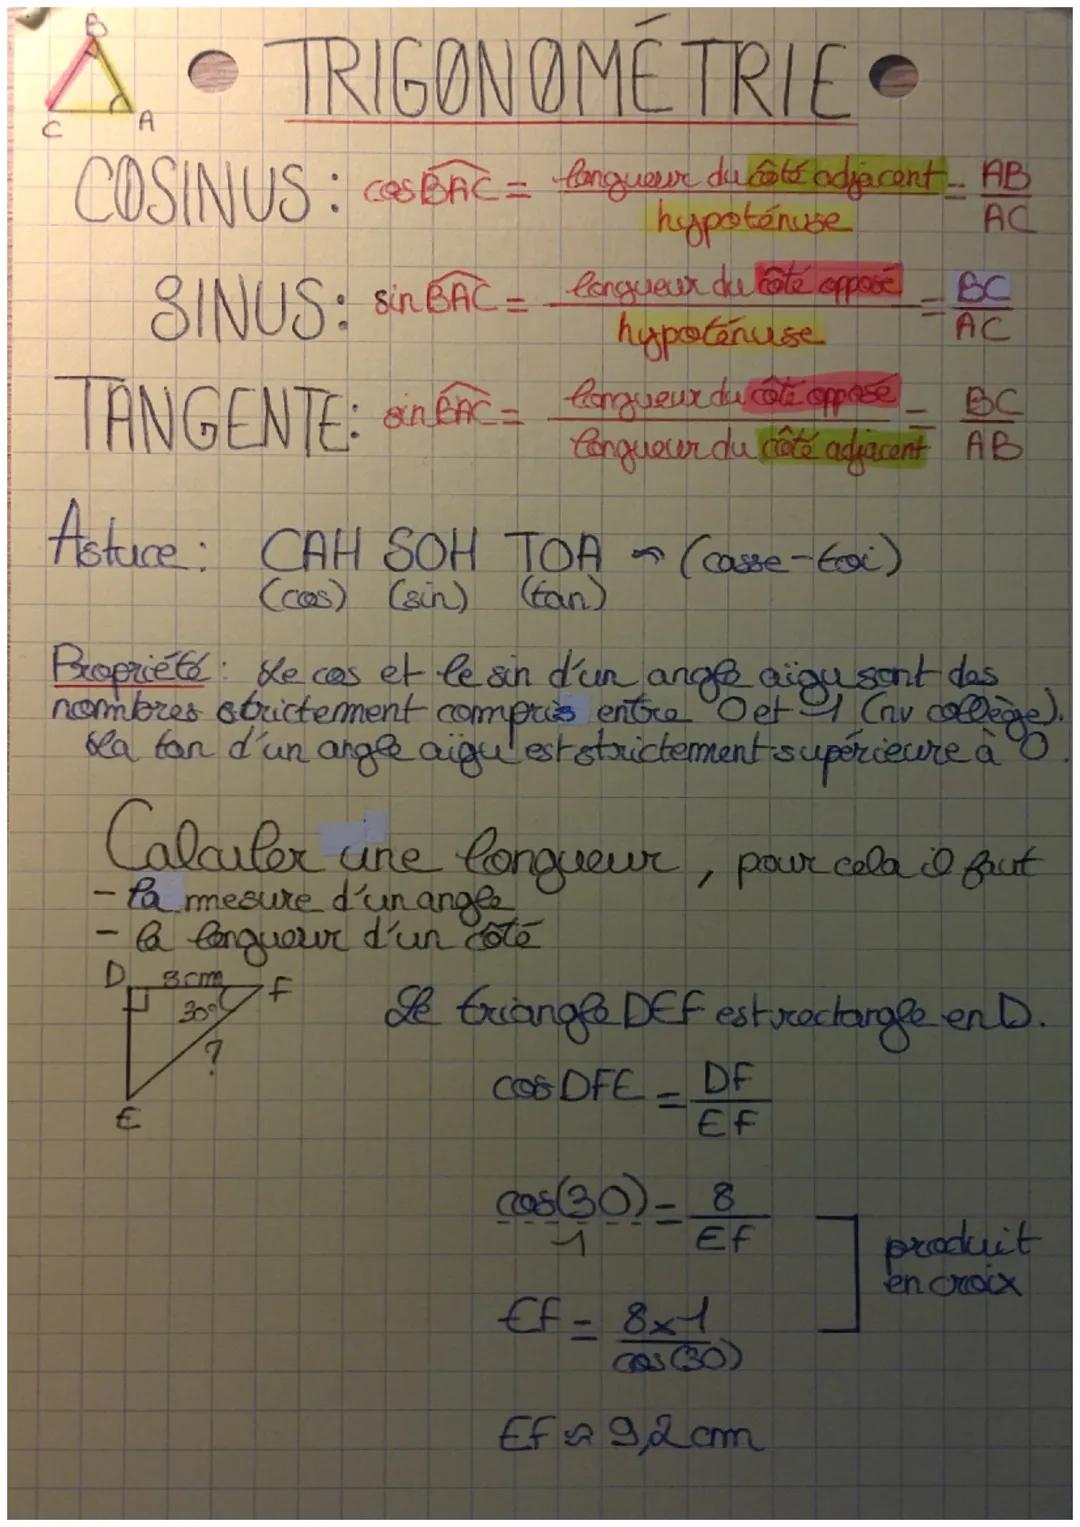 B
C A
TRIGONOMÉTRIE
COSINUS : cos BAC = longueur du côté adjacent / hypoténuse = AB / AC
SINUS : sin BAC = longueur du côté opposé / hypoténuse = BC / AC
TANGENTE : sin BAC = longueur du côté opposé / longueur du côté adjacent = BC / AB
Astuce : CAH SOH TOA → (casse-toi)
(cos) (sin) (tan)
Propriété : Le cos et le sin d'un angle aïgu sont des
nombres strictement compris entre 0 et 1 (nv collège).
La tan d'un angle aïgu est strictement supérieure à 0.
Calculer une longueur, pour cela il faut
- la mesure d'un angle
- la longueur d'un côté
D 8cm F
30°
?
E
Le triangle DEF est rectangle en D.
cos DFE = DF / EF
cos(30) / 1 = 8 / EF
produit
en croix
EF = 8x1 / cos(30)
EF ≈ 9,2 cm